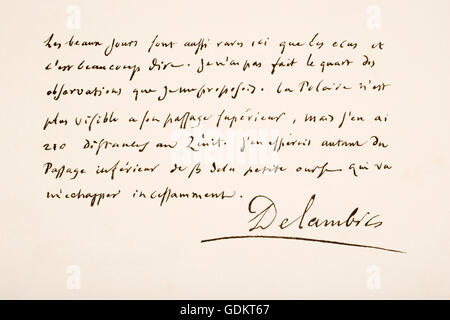 Les beaux jours sont aussi rares ici que les ecus et
c'est beaucoup dire. Je n'ai pas fait le quart des
observations que je me proposois. La Polaire n'est
plus visible a son passage superieur, mais j'en ai
210 distances au Zenit. J'en esperois autant du
Passage inférieur de β de la petite ourse qui va
m'echapper incessamment.
Delambre
alamy stock photo
GDKT67
www.alamy.com